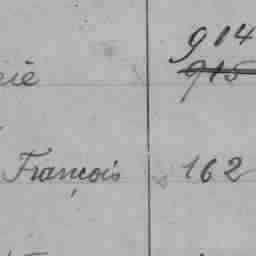 914
915
François 162